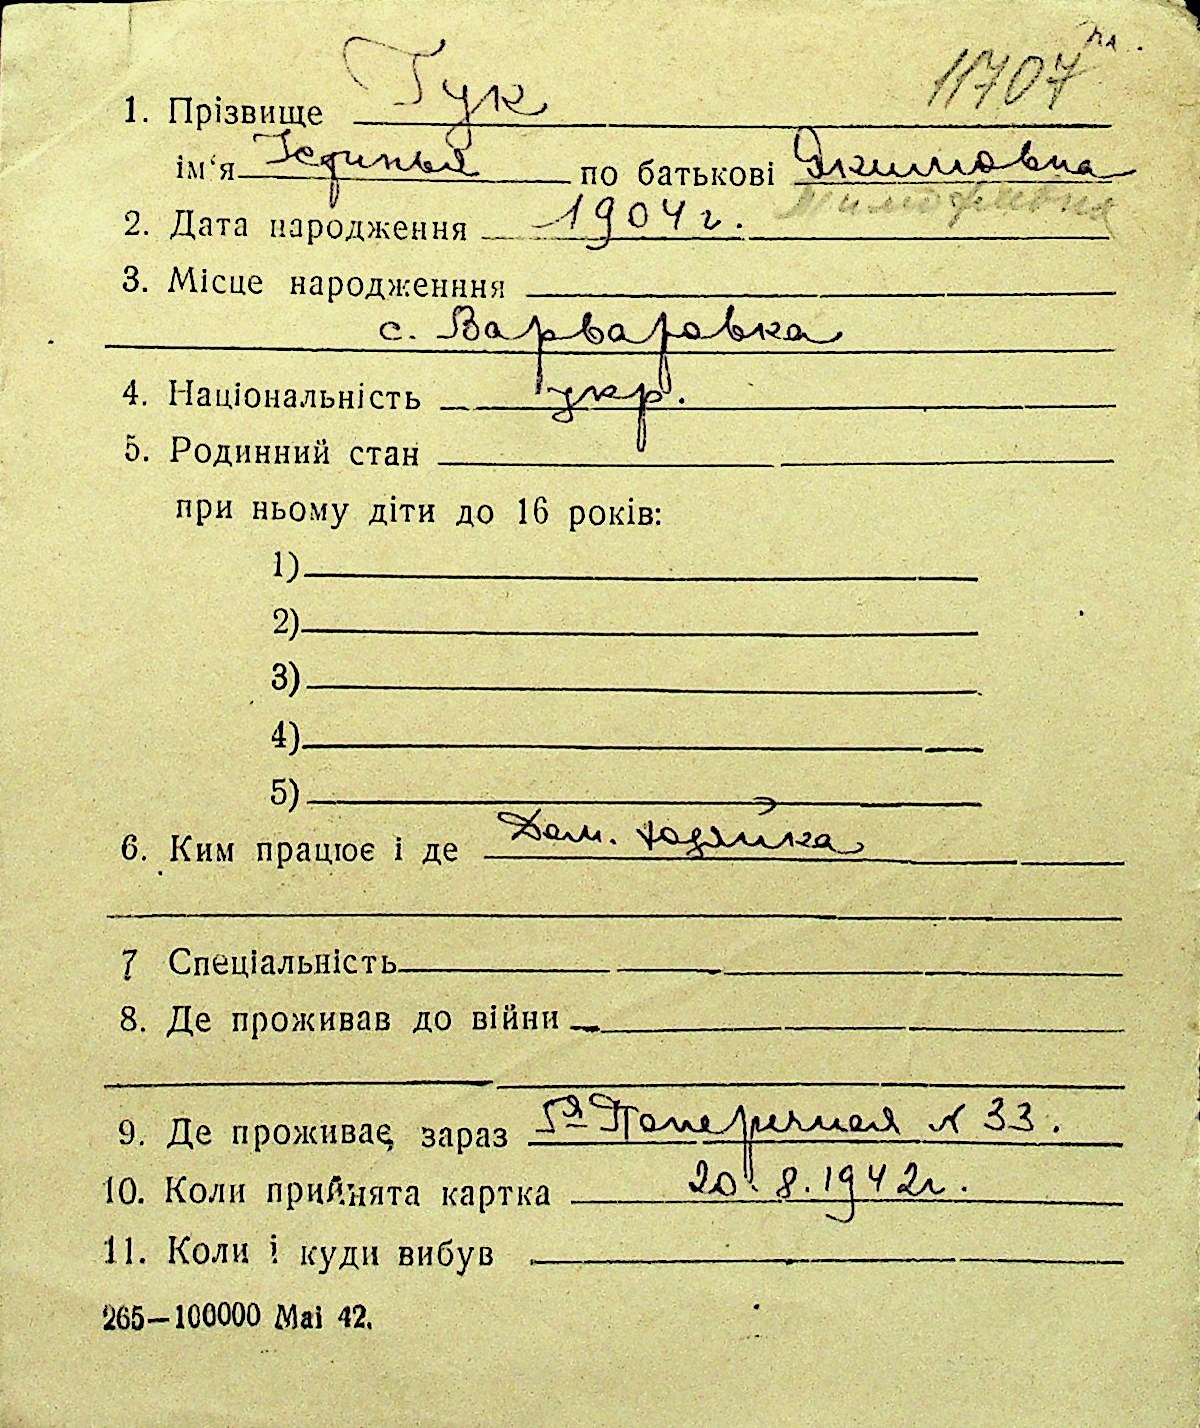 11707
1. Прізвище Гук
ім'я по батькові Якимовна
Тимофеевна
2. Дата народження 1904 г.
3. Місце народженння
с. Варваровка
4. Національність укр.
5. Родинний стан
при ньому діти до 16 років:
1)
2)
3)
4)
5)
6. Ким працює і де Дом. хозяйка
7 Спеціальність
8. Де проживав до війни
9. Де проживає зараз 5я Поперечная № 33.
10. Коли прийнята картка 20.8.1942г.
11. Коли і куди вибув
265—100000 Mai 42.